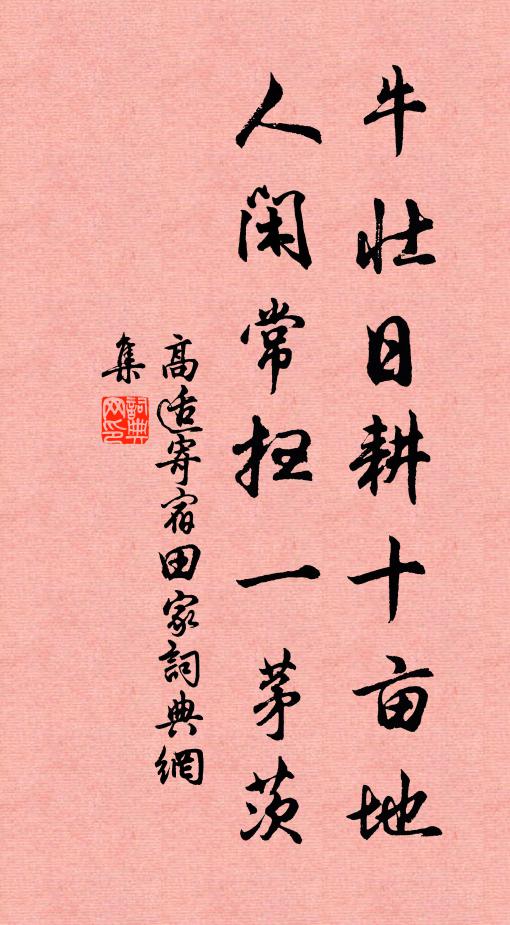 牛壮日耕十亩地
人闲常扫一茅茨
高适寄宿田家詞典網
集
詞典網印